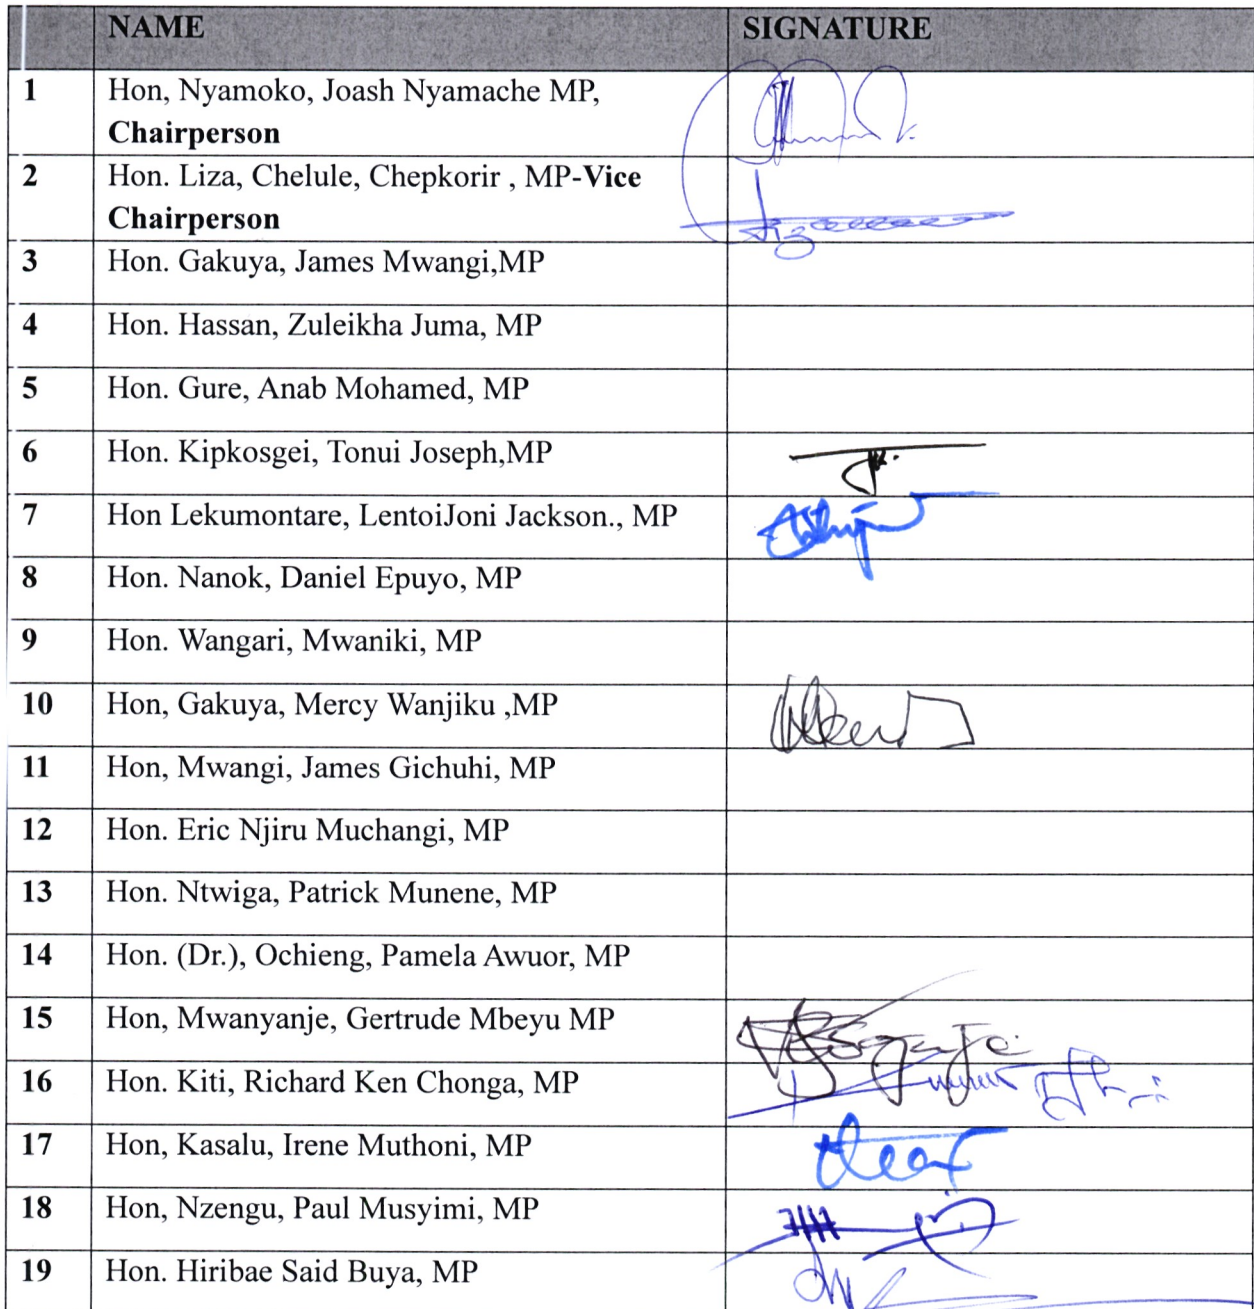 NAME SIGNATURE
1 Hon, Nyamoko, Joash Nyamache MP,
Chairperson
2 Hon. Liza, Chelule, Chepkorir , MP-Vice
Chairperson
3 Hon. Gakuya, James Mwangi,MP
4 Hon. Hassan, Zuleikha Juma, MP
5 Hon. Gure, Anab Mohamed, MP
6 Hon. Kipkosgei, Tonui Joseph,MP
7 Hon Lekumontare, LentoiJoni Jackson., MP
8 Hon. Nanok, Daniel Epuyo, MP
9 Hon. Wangari, Mwaniki, MP
10 Hon, Gakuya, Mercy Wanjiku ,MP
11 Hon, Mwangi, James Gichuhi, MP
12 Hon. Eric Njiru Muchangi, MP
13 Hon. Ntwiga, Patrick Munene, MP
14 Hon. (Dr.), Ochieng, Pamela Awuor, MP
15 Hon, Mwanyanje, Gertrude Mbeyu MP
16 Hon. Kiti, Richard Ken Chonga, MP
17 Hon, Kasalu, Irene Muthoni, MP
18 Hon, Nzengu, Paul Musyimi, MP
19 Hon. Hiribae Said Buya, MP